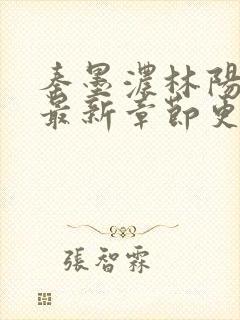 秦墨濃林陽
最新章節更
張智霖